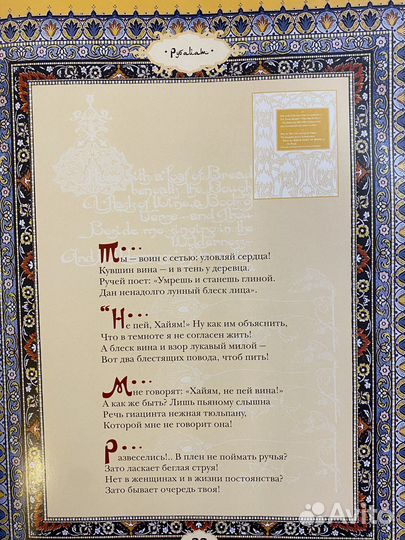 • Рубайат •
With a Loaf of Bread
beneath the Bough
A Flask of Wine, a Book of
Verse - and Thou
Beside me singing in the
Wilderness
And
Ты — воин с сетью: уловляй сердца!
Кувшин вина — и в тень у деревца.
Ручей поет: «Умрешь и станешь глиной.
Дан ненадолго лунный блеск лица».
“Не пей, Хайям!” Ну как им объяснить,
Что в темноте я не согласен жить!
А блеск вина и взор лукавый милой —
Вот два блестящих повода, чтоб пить!
Мне говорят: «Хайям, не пей вина!»
А как же быть? Лишь пьяному слышна
Речь гиацинта нежная тюльпану,
Которой мне не говорит она!
Развеселись!.. В плен не поймать ручья?
Зато ласкает беглая струя!
Нет в женщинах и в жизни постоянства?
Зато бывает очередь твоя!
Avito